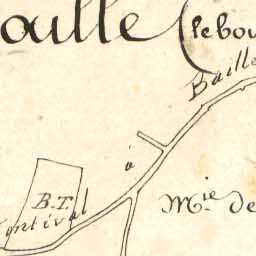 aille (le bou
Baille
à
B.T.
Pontival
M.ie de